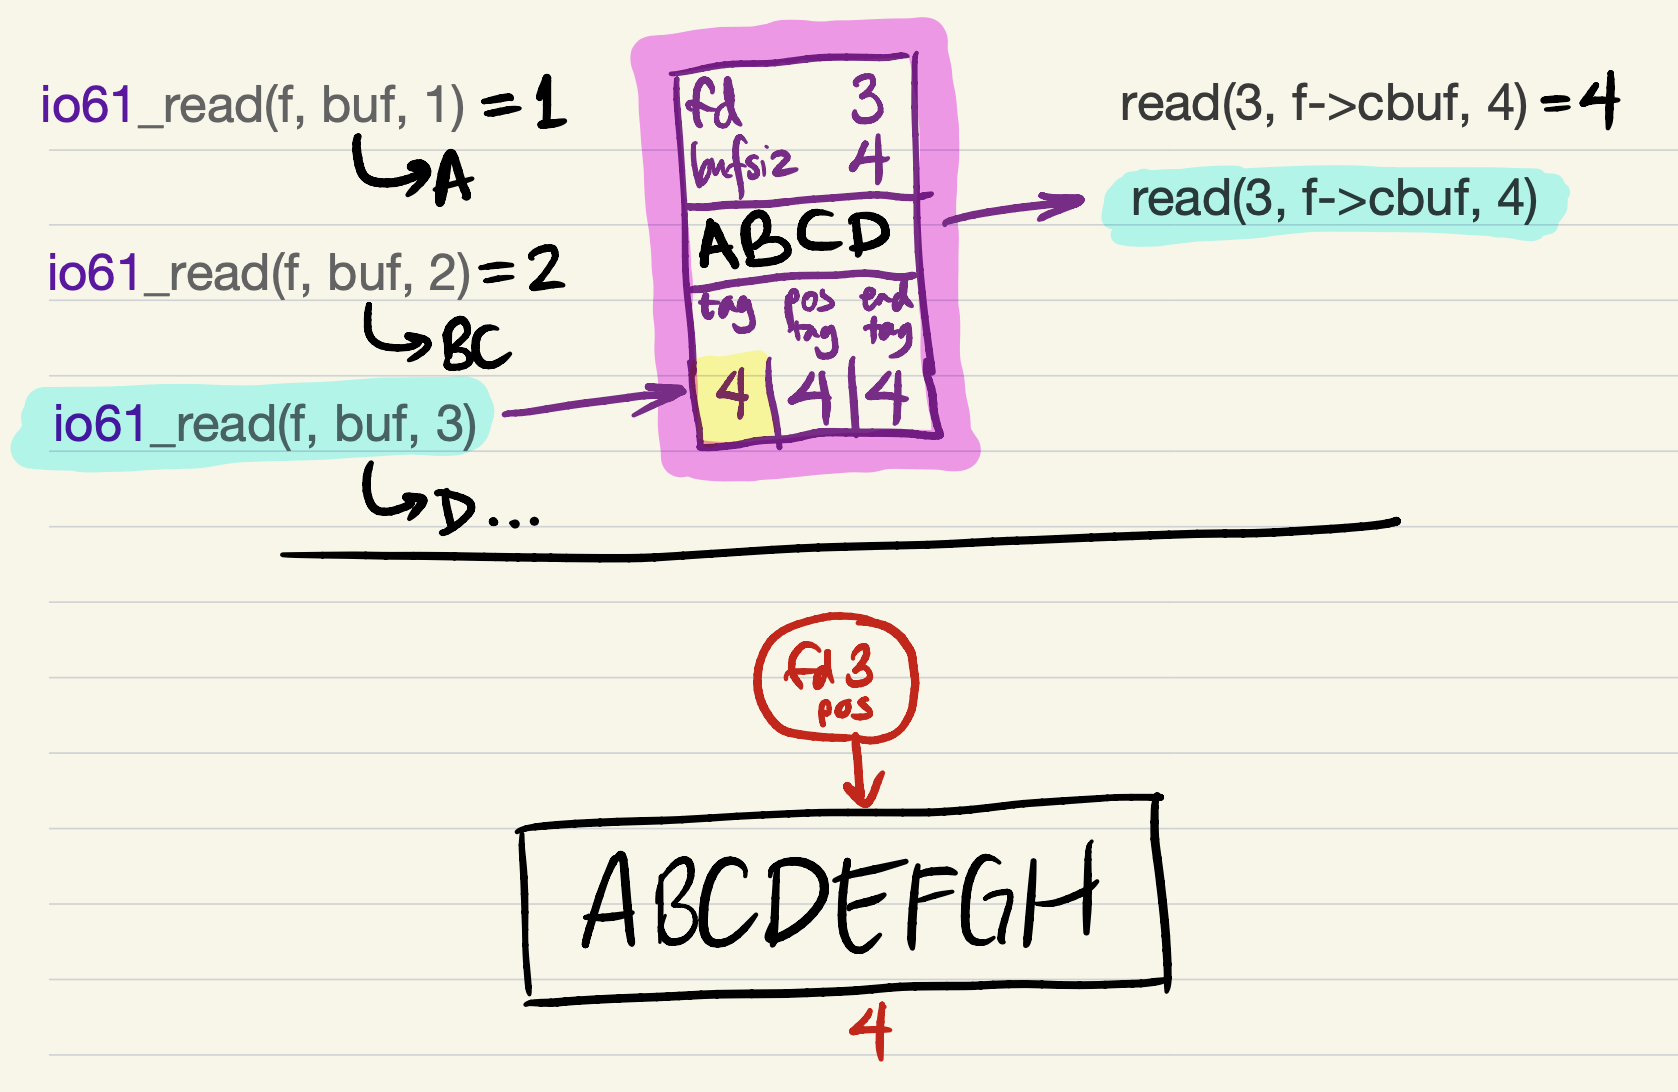 io61_read(f, buf, 1) = 1
A
io61_read(f, buf, 2) = 2
BC
io61_read(f, buf, 3)
D...
fd 3
bufsiz 4
ABCD
tag pos tag end tag
4 4 4
read(3, f->cbuf, 4) = 4
read(3, f->cbuf, 4)
fd 3
pos
ABCDEFGH
4